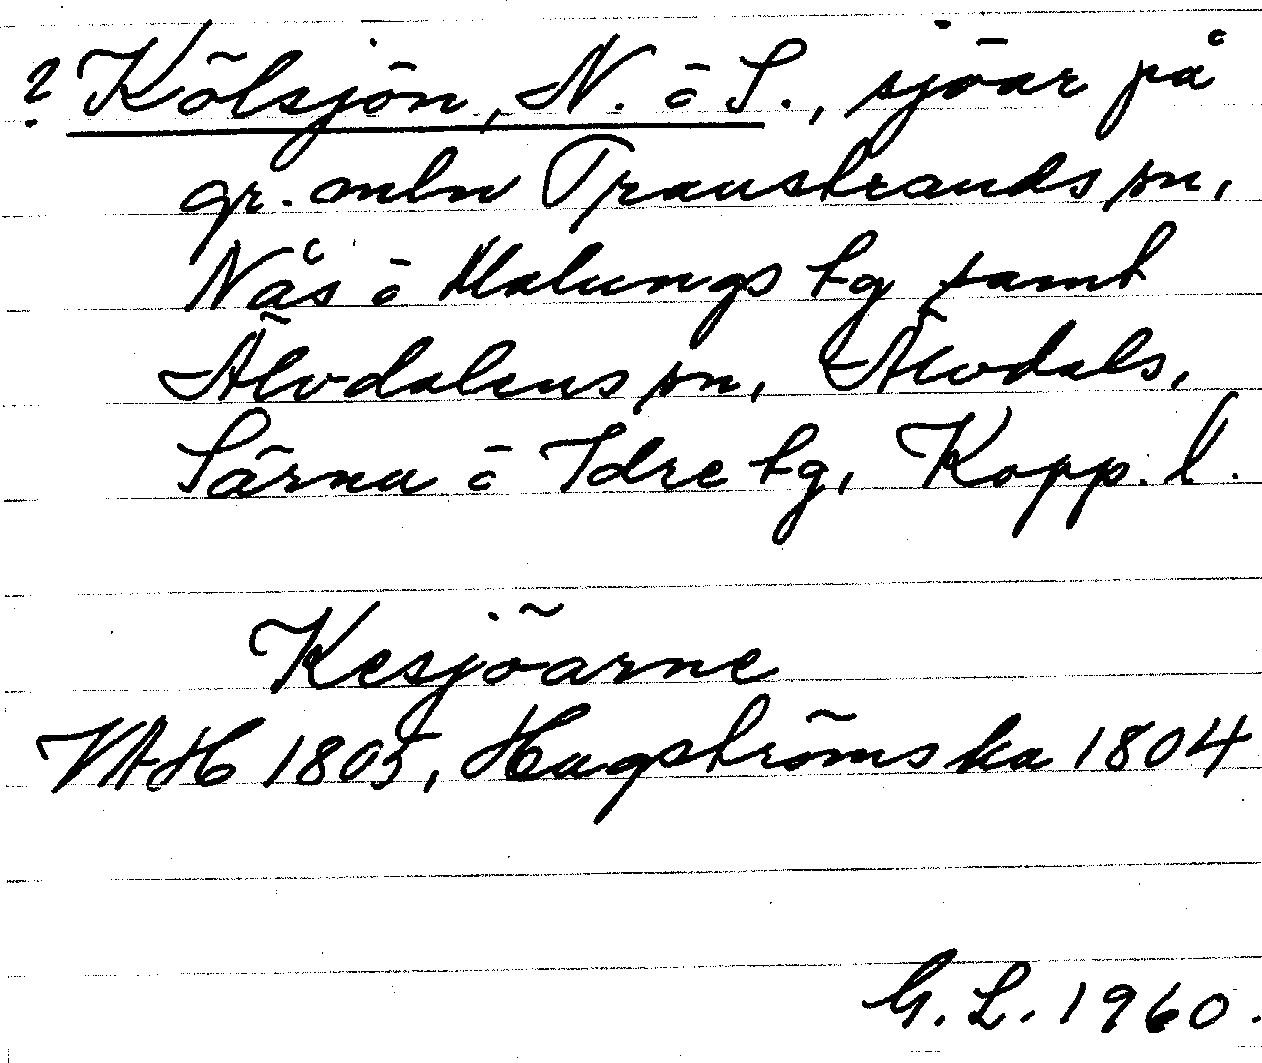 ? Kölsjön, N. ō S., sjöar på
gr. mln Transtrands sn,
Nås ō Malungs tg samt
Älvdalens sn, Älvdals,
Särna ō Idre tg, Kopp. l.
Kesjöarne
VAH 1805, Hagströmska 1804
G. L. 1960.